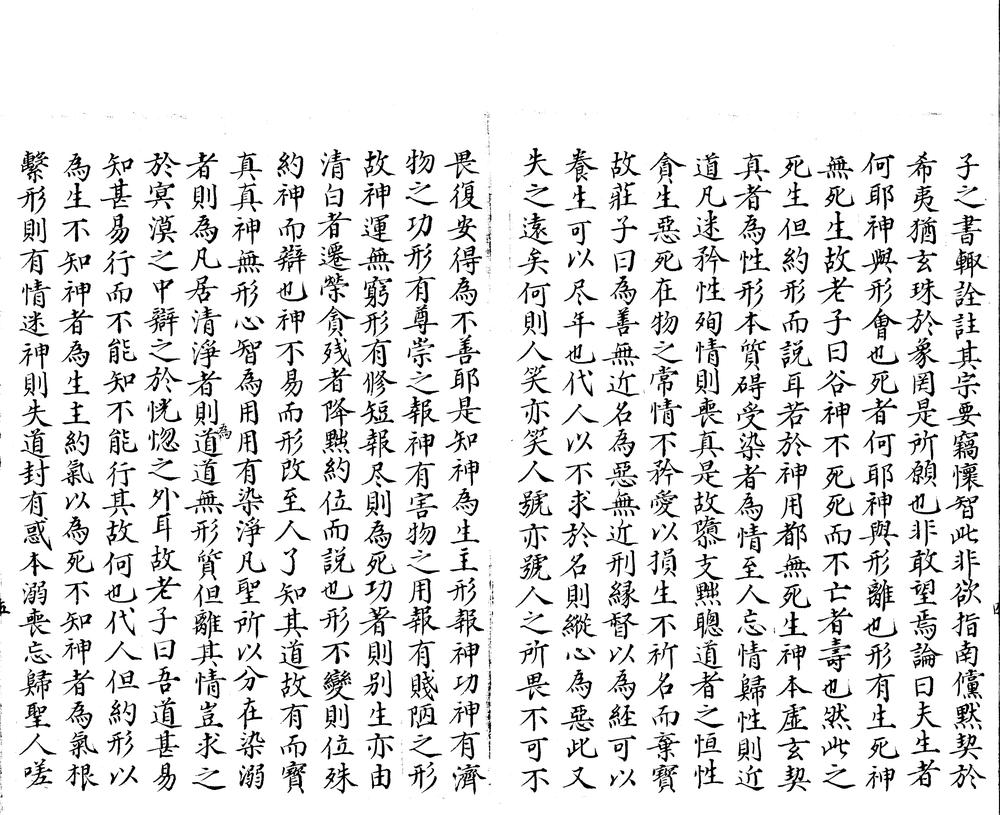 子之書輙詮註其宗要竊懷智此非欲指南儻默契於
希夷猶玄珠於象罔是所願也非敢望焉論曰夫生者
何耶神與形會也死者何耶神與形離也形有生死神
無死生故老子曰谷神不死死而不亡者壽也然此之
死生但約形而説耳若於神用都無死生神本虛玄契
真者為性形本質碍受染者為情至人忘情歸性則近
道凡迷矜性殉情則喪真是故隳支黜聰道者之恒性
貪生惡死在物之常情不矜愛以損生不祈名而棄寶
故莊子曰為善無近名為惡無近刑縁督以為経可以
養生可以尽年也代人以不求於名則縱心為惡此又
失之遠矣何則人笑亦笑人號亦號人之所畏不可不
畏復安得為不善耶是知神為生主形報神功神有濟
物之功形有尊崇之報神有害物之用報有賤陋之形
故神運無窮形有修短報尽則為死功著則别生亦由
清白者遷榮貪残者降黜約位而説也形不變則位殊
約神而辯也神不易而形改至人了知其道故有而寶
真真神無形心智為用用有染淨凡聖所以分在染溺
者則為凡居清淨者則為道道無形質但離其情豈求之
於冥漠之中辯之於恍惚之外耳故老子曰吾道甚易
知甚易行而不能知不能行其故何也代人但約形以
為生不知神者為生主約氣以為死不知神者為氣根
繫形則有情迷神則失道封有惑本溺喪忘歸聖人嗟